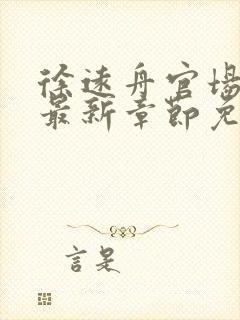 徐远舟官场
最新章节免
言是